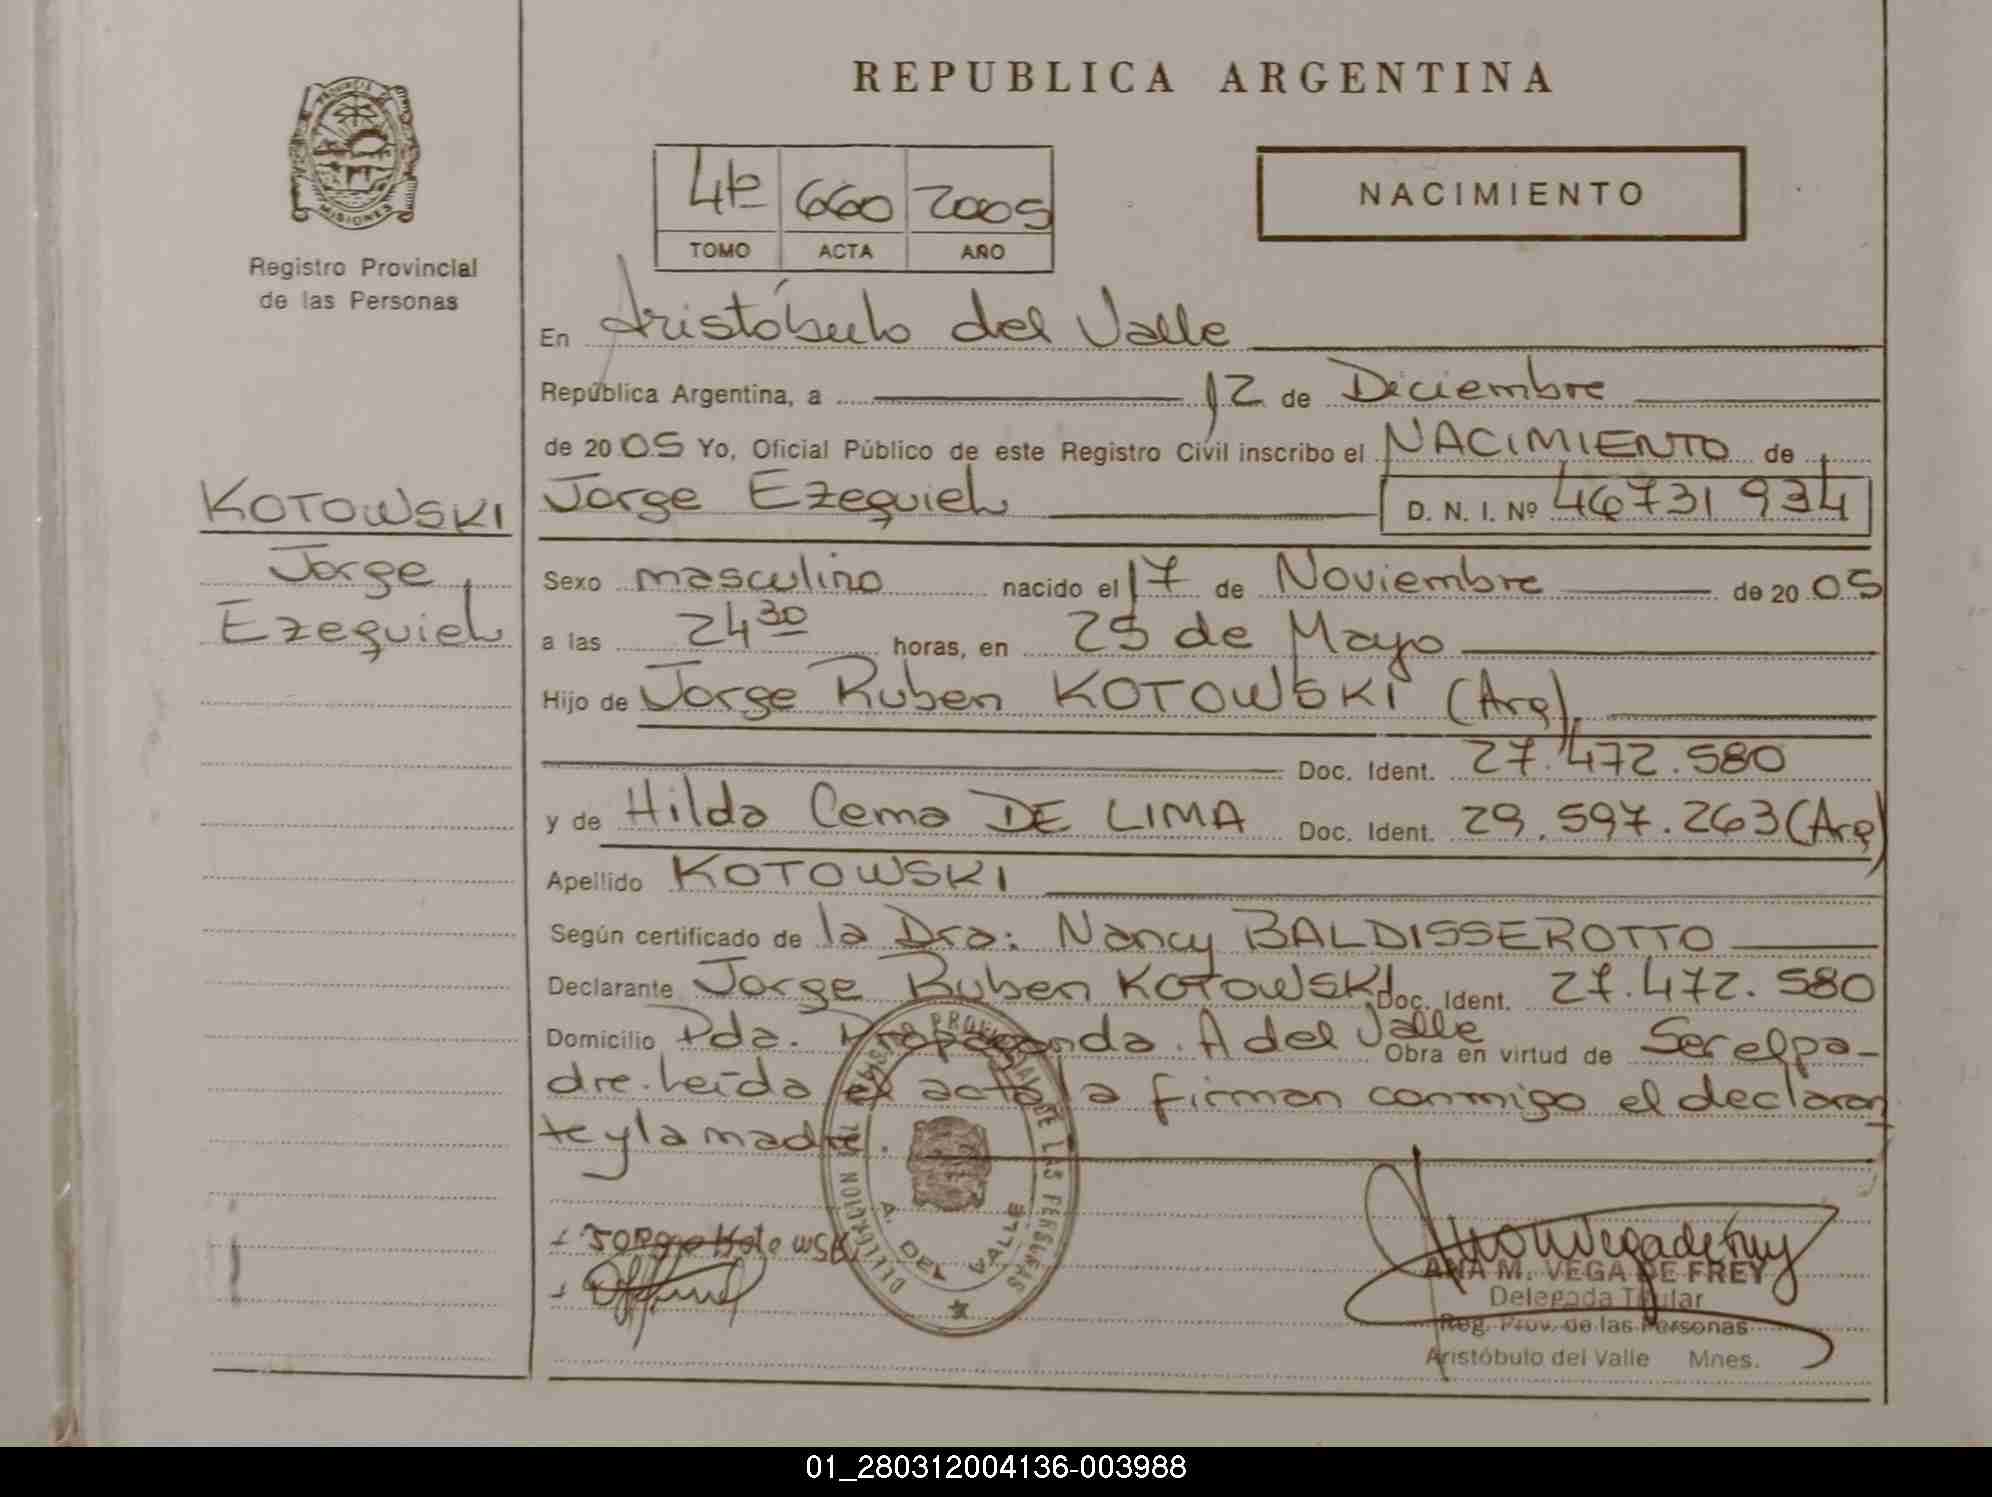 REPUBLICA ARGENTINA
PROVINCIA DE
MISIONES
Registro Provincial
de las Personas
4to 660 2005
TOMO ACTA AÑO
NACIMIENTO
En Aristóbulo del Valle
República Argentina, a 12 de Diciembre
de 2005 Yo, Oficial Público de este Registro Civil inscribo el NACIMIENTO de
Jorge Ezequiel D. N. I. Nº 46731934
KOTOWSKI
Jorge
Ezequiel
Sexo masculino nacido el 17 de Noviembre de 2005
a las 24 30 horas, en 25 de Mayo
Hijo de Jorge Ruben KOTOWSKI (Arg),
Doc. Ident. 27.472.580
y de Hilda Cema DE LIMA Doc. Ident. 29.597.263 (Arg)
Apellido KOTOWSKI
Según certificado de la Dra: Nancy BALDISSEROTTO
Declarante Jorge Ruben KOTOWSKI Doc. Ident. 27.472.580
Domicilio Pda. Propaganda. A del Valle Obra en virtud de Ser el pa-
dre. Leída el acta la firman conmigo el declaran
te y la madre.
DELEGACION DEL REGISTRO PROVINCIAL DE LAS PERSONAS
A. DEL VALLE
Jorge Kotowski
ANA M. VEGA DE FREY
Delegada Titular
Reg. Prov. de las Personas
Aristóbulo del Valle Mnes.
01_280312004136-003988